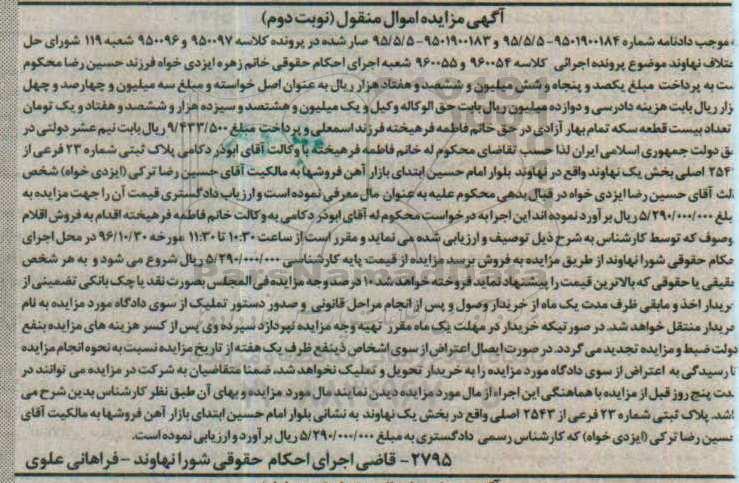 آگهی مزایده اموال منقول (نوبت دوم)
به موجب دادنامه شماره ۹۵۰۱۹۰۰۱۸۴-۹۵/۵/۵ و ۹۵۰۱۹۰۰۱۸۳-۹۵/۵/۵ صادر شده در پرونده کلاسه ۹۵۰۰۹۷ و ۹۵۰۰۹۶ شعبه ۱۱۹ شورای حل
اختلاف نهاوند موضوع پرونده اجرائی کلاسه ۹۶۰۰۵۴ و ۹۶۰۰۵۵ شعبه اجرای احکام حقوقی خانم زهره ایزدی خواه فرزند حسین رضا محکوم
است به پرداخت مبلغ یکصد و پنجاه و شش میلیون و ششصد و هفتاد هزار ریال به عنوان اصل خواسته و مبلغ سه میلیون و چهارصد و چهل
هزار ریال بابت هزینه دادرسی و دوازده میلیون ریال بابت حق الوکاله وکیل و یک میلیون و هشتصد و سیزده هزار و ششصد و هفتاد و یک تومان
تعداد بیست قطعه سکه تمام بهار آزادی در حق خانم فاطمه فرهیخته فرزند اسمعلی و پرداخت مبلغ ۹/۴۳۳/۵۰۰ ریال بابت نیم عشر دولتی در
حق دولت جمهوری اسلامی ایران لذا حسب تقاضای محکوم له خانم فاطمه فرهیخته با وکالت آقای ابوذر دکامی پلاک ثبتی شماره ۲۳ فرعی از
۲۵۴۳ اصلی بخش یک نهاوند واقع در نهاوند بلوار امام حسین ابتدای بازار آهن فروشها به مالکیت آقای حسین رضا ترکی (ایزدی خواه) شخص
ثالث آقای حسین رضا ایزدی خواه در قبال بدهی محکوم علیه به عنوان مال معرفی نموده است و ارزیاب دادگستری قیمت آن را جهت مزایده به
مبلغ ۵/۲۹۰/۰۰۰/۰۰۰ ریال برآورد نموده اند این اجرا به درخواست محکوم له آقای ابوذر دکامی به وکالت خانم فاطمه فرهیخته اقدام به فروش اقلام
موصوف که توسط کارشناس به شرح ذیل توصیف و ارزیابی شده می نماید و مقرر است از ساعت ۱۰:۳۰ تا ۱۱:۳۰ مورخه ۹۶/۱۰/۳۰ در محل اجرای
احکام حقوقی شورا نهاوند از طریق مزایده به فروش برسد مزایده از قیمت پایه کارشناسی ۵/۲۹۰/۰۰۰/۰۰۰ ریال شروع می شود و به هر شخص
حقیقی یا حقوقی که بالاترین قیمت را پیشنهاد نماید فروخته خواهد شد ۱۰ درصد وجه مزایده فی المجلس بصورت نقد یا چک بانکی تضمینی از
خریدار اخذ و مابقی ظرف مدت یک ماه از خریدار وصول و پس از انجام مراحل قانونی و صدور دستور تملیک از سوی دادگاه مورد مزایده به نام
خریدار منتقل خواهد شد. در صورتیکه خریدار در مهلت یک ماه مقرر تهیه وجه مزایده نپردازد سپرده وی پس از کسر هزینه های مزایده بنفع
دولت ضبط و مزایده تجدید می گردد. در صورت ایصال اعتراض از سوی اشخاص ذینفع ظرف یک هفته از تاریخ مزایده نسبت به نحوه انجام مزایده
تا رسیدگی به اعتراض از سوی دادگاه مورد مزایده را به خریدار تحویل و تملیک نخواهد شد، ضمنا متقاضیان به شرکت در مزایده می توانند در
مدت پنج روز قبل از مزایده با هماهنگی این اجراء از مال مورد مزایده دیدن نمایند مال مورد مزایده و بهای آن طبق نظر کارشناس بدین شرح می
باشد. پلاک ثبتی شماره ۲۳ فرعی از ۲۵۴۳ اصلی واقع در بخش یک نهاوند به نشانی بلوار امام حسین ابتدای بازار آهن فروشها به مالکیت آقای
حسین رضا ترکی (ایزدی خواه) که کارشناس رسمی دادگستری به مبلغ ۵/۲۹۰/۰۰۰/۰۰۰ ریال برآورد و ارزیابی نموده است.
۲۷۹۵- قاضی اجرای احکام حقوقی شورا نهاوند - فراهانی علوی
ParsNamadData